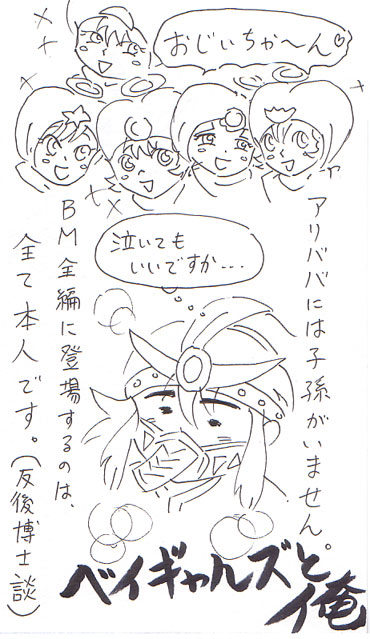 おじいちゃ〜ん♡
アリババには子孫がいません。
泣いても
いいですか...
BM全編に登場するのは、
全て本人です。(反後博士談)
ベイギャルズと俺